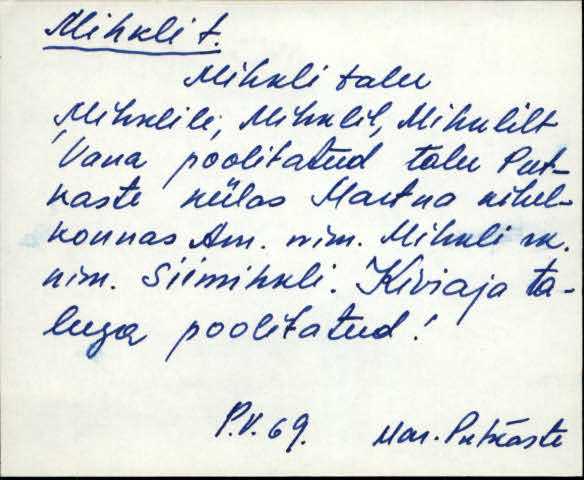 Mihkli t.
Mihkli talu
Mihklile, Mihklil, Mihklilt
Vana poolitatud talu Put-
kaste külas Martna kihel-
konnas Am. nim. Mihkli rk.
nim. Siimihkli. Kiviaja ta-
luga poolitatud!
P.V. 69. Mar. Putkaste